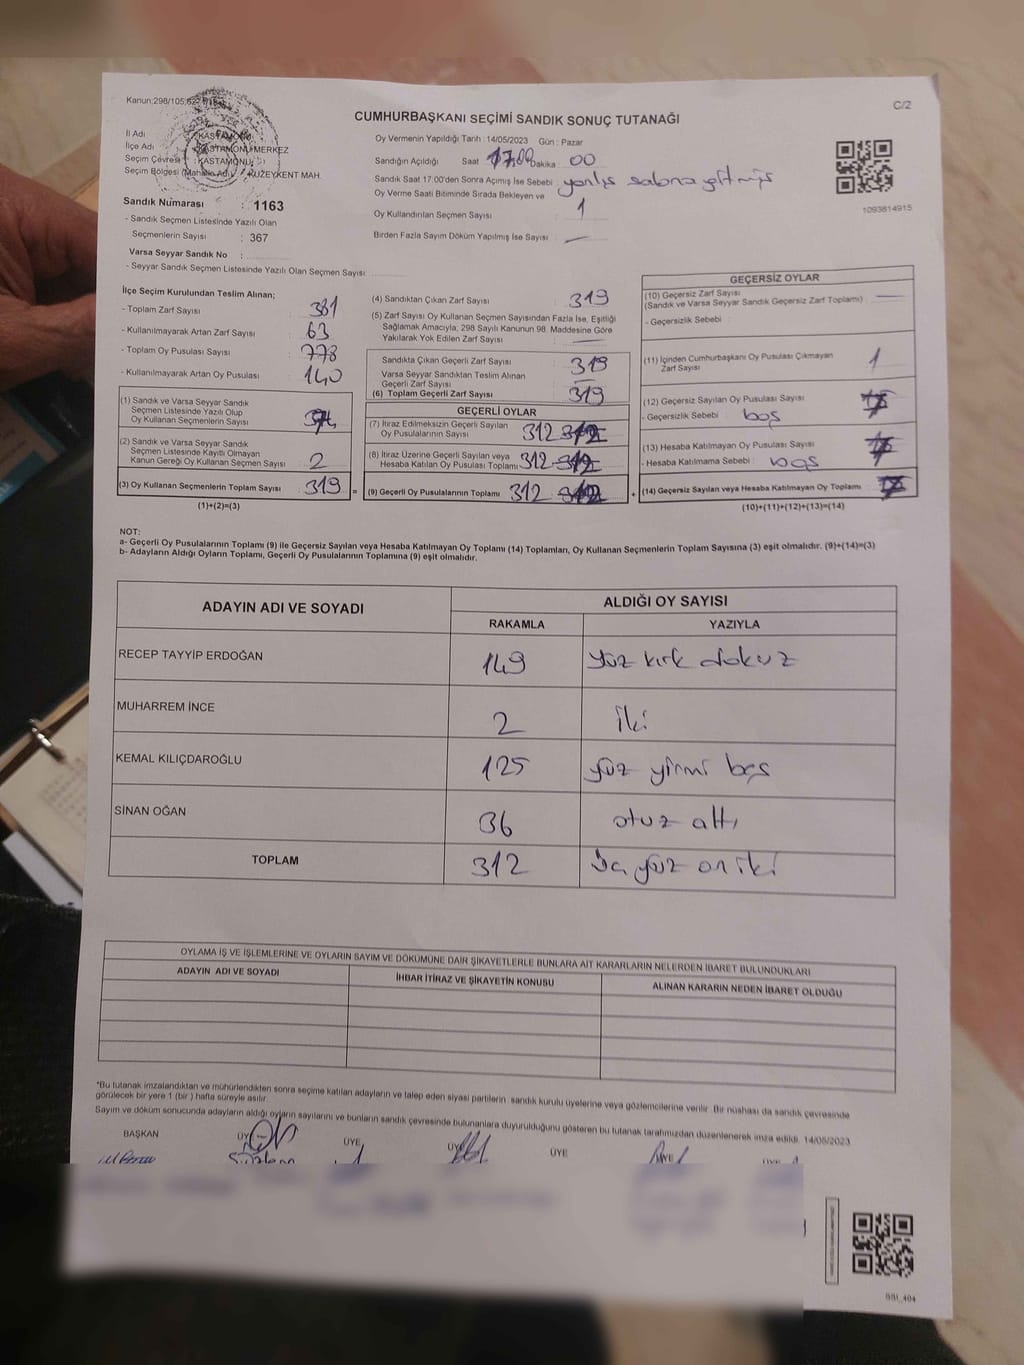 Kanun:298/105,
C/2
CUMHURBAŞKANI SEÇİMİ SANDIK SONUÇ TUTANAĞI
İl Adı : KASTAMONU
İlçe Adı : KASTAMONU MERKEZ
Seçim Çevresi : KASTAMONU
Seçim Bölgesi (Mahalle Adı) : KUZEYKENT MAH.
Sandık Numarası : 1163
- Sandık Seçmen Listesinde Yazılı Olan
Seçmenlerin Sayısı : 367
Varsa Seyyar Sandık No :
- Seyyar Sandık Seçmen Listesinde Yazılı Olan Seçmen Sayısı:
Oy Vermenin Yapıldığı Tarih : 14/05/2023 Gün : Pazar
Sandığın Açıldığı Saat 17,00 Dakika 00
Sandık Saat 17.00'den Sonra Açımış İse Sebebi : yanlış salona gitmiş
Oy Verme Saati Bitiminde Sırada Bekleyen ve
Oy Kullandırılan Seçmen Sayısı : 1
Birden Fazla Sayım Döküm Yapılmış İse Sayısı : —
1093814915
İlçe Seçim Kurulundan Teslim Alınan;
- Toplam Zarf Sayısı : 381
- Kullanılmayarak Artan Zarf Sayısı : 63
- Toplam Oy Pusulası Sayısı : 778
- Kullanılmayarak Artan Oy Pusulası : 140
(1) Sandık ve Varsa Seyyar Sandık
Seçmen Listesinde Yazılı Olup
Oy Kullanan Seçmenlerin Sayısı :
(2) Sandık ve Varsa Seyyar Sandık
Seçmen Listesinde Kayıtlı Olmayan
Kanun Gereği Oy Kullanan Seçmen Sayısı : 2
(3) Oy Kullanan Seçmenlerin Toplam Sayısı : 319
(1)+(2)=(3)
(4) Sandıktan Çıkan Zarf Sayısı : 319
(5) Zarf Sayısı Oy Kullanan Seçmen Sayısından Fazla İse, Eşitliği
Sağlamak Amacıyla, 298 Sayılı Kanunun 98. Maddesine Göre
Yakılarak Yok Edilen Zarf Sayısı : —
Sandıkta Çıkan Geçerli Zarf Sayısı : 319
Varsa Seyyar Sandıktan Teslim Alınan
Geçerli Zarf Sayısı : —
(6) Toplam Geçerli Zarf Sayısı : 319
GEÇERLİ OYLAR
(7) İtiraz Edilmeksizin Geçerli Sayılan
Oy Pusulalarının Sayısı : 312
(8) İtiraz Üzerine Geçerli Sayılan veya
Hesaba Katılan Oy Pusulası Toplamı : 312
= (9) Geçerli Oy Pusulalarının Toplamı : 312
GEÇERSİZ OYLAR
(10) Geçersiz Zarf Sayısı : —
(Sandık ve Varsa Seyyar Sandık Geçersiz Zarf Toplamı)
- Geçersizlik Sebebi :
(11) İçinden Cumhurbaşkanı Oy Pusulası Çıkmayan
Zarf Sayısı : 1
(12) Geçersiz Sayılan Oy Pusulası Sayısı :
- Geçersizlik Sebebi : boş
(13) Hesaba Katılmayan Oy Pusulası Sayısı :
- Hesaba Katılmama Sebebi : boş
+ (14) Geçersiz Sayılan veya Hesaba Katılmayan Oy Toplamı :
(10)+(11)+(12)+(13)=(14)
NOT:
a- Geçerli Oy Pusulalarının Toplamı (9) ile Geçersiz Sayılan veya Hesaba Katılmayan Oy Toplamı (14) Toplamları, Oy Kullanan Seçmenlerin Toplam Sayısına (3) eşit olmalıdır. (9)+(14)=(3)
b- Adayların Aldığı Oyların Toplamı, Geçerli Oy Pusulalarının Toplamına (9) eşit olmalıdır.
ADAYIN ADI VE SOYADI
ALDIĞI OY SAYISI
RAKAMLA YAZIYLA
RECEP TAYYİP ERDOĞAN 149 yüz kırk dokuz
MUHARREM İNCE 2 iki
KEMAL KILIÇDAROĞLU 125 yüz yirmi beş
SİNAN OĞAN 36 otuz altı
TOPLAM 312 yüz on iki
OYLAMA İŞ VE İŞLEMLERİNE VE OYLARIN SAYIM VE DÖKÜMÜNE DAİR ŞİKAYETLERLE BUNLARA AİT KARARLARIN NELERDEN İBARET BULUNDUKLARI
ADAYIN ADI VE SOYADI İHBAR İTİRAZ VE ŞİKAYETİN KONUSU ALINAN KARARIN NEDEN İBARET OLDUĞU
*Bu tutanak imzalandıktan ve mühürlendikten sonra seçime katılan adayların ve talep eden siyasi partilerin sandık kurulu üyelerine veya gözlemcilerine verilir. Bir nüshası da sandık çevresinde
görülecek bir yere 1 (bir) hafta süreyle asılır.
Sayım ve döküm sonucunda adayların aldığı oyların sayılarını ve bunların sandık çevresinde bulunanlara duyurulduğunu gösteren bu tutanak tarafımızdan düzenlenerek imza edildi. 14/05/2023
BAŞKAN ÜYE ÜYE ÜYE ÜYE ÜYE ÜYE